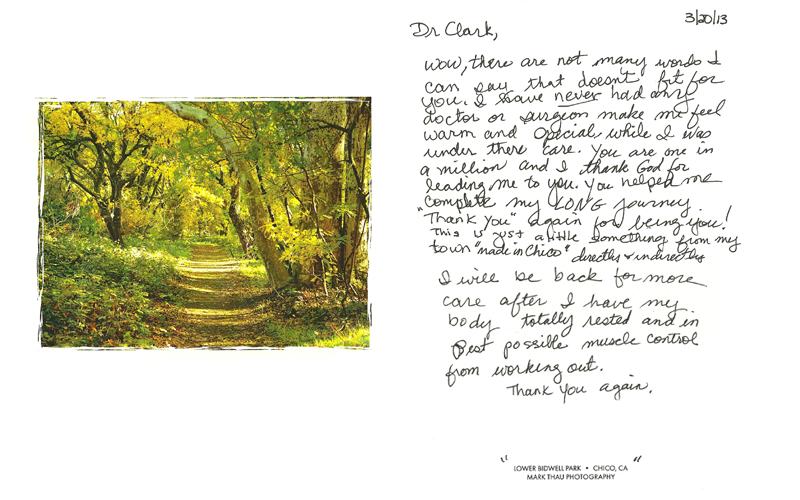 3/20/13
Dr Clark,
Wow, there are not many words I
can say that doesn't fit for
you. I have never had any
doctor or surgeon make me feel
warm and special while I was
under there care. You are one in
a million and I thank God for
leading me to you. You helped me
complete my LONG journey.
"Thank you" again for being you!
This is just a little something from my
town "made in Chico" directly & indirectly
I will be back for more
care after I have my
body totally rested and in
Best possible muscle control
from working out.
Thank you again.
" "
LOWER BIDWELL PARK • CHICO, CA
MARK THAU PHOTOGRAPHY